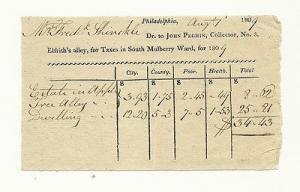 Philadelphia, Augt 1809
Mr Fredk Shinckle
Dr. to JOHN PECHIN, Collector, No. 3,
Elfrith's alley, for Taxes in South Mulberry Ward, for 1809
City. County. Poor. Health. Total
Estate in Apple
Tree Alley 3-93 1-75 2-45 -49 8-62
Dwelling 12-20 5-3 7-5 1-53 25-81
34-43